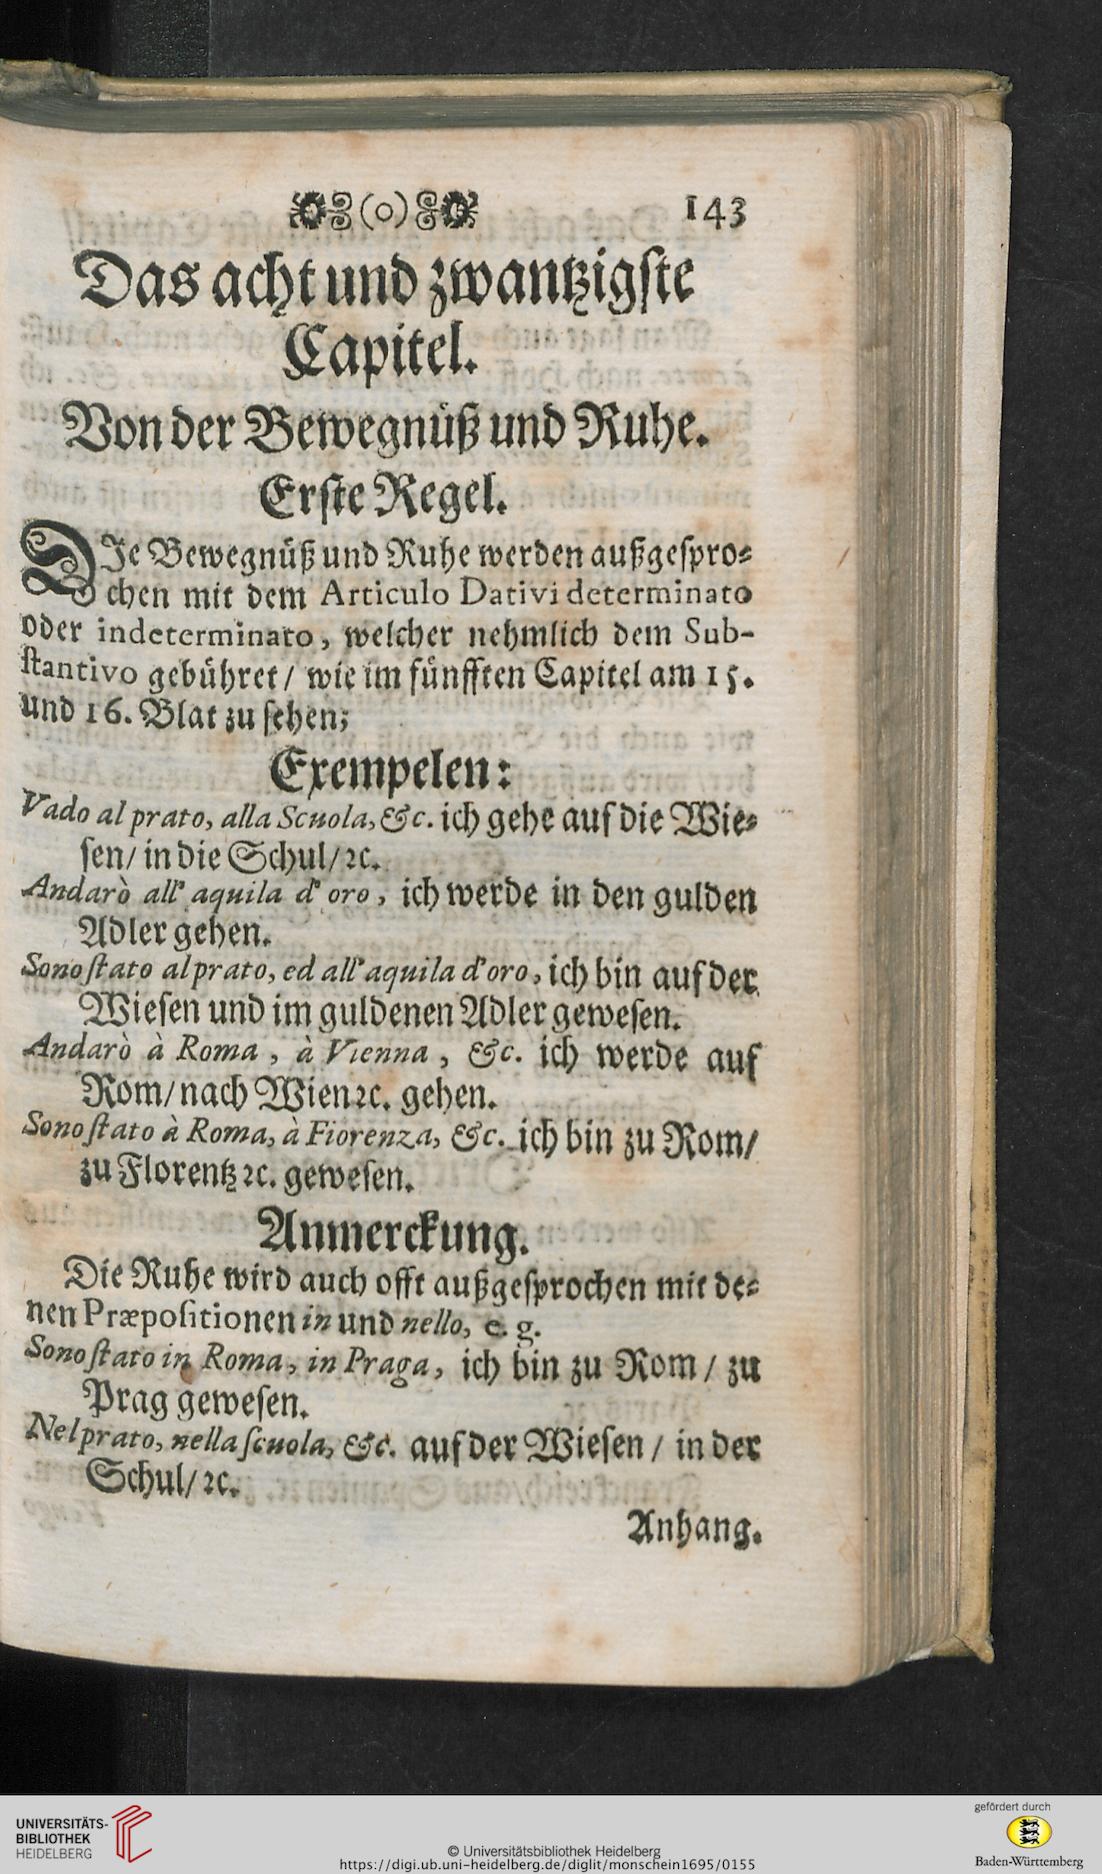 (o) 143
Das acht und zwantzigste
Capitel.
Von der Bewegnüß und Ruhe.
Erste Regel.
DIe Bewegnüß und Ruhe werden außgespro⸗
chen mit dem Articulo Dativi determinato
oder indeterminato, welcher nehmlich dem Sub-
stantivo gebühret / wie im fünfften Capitel am 15.
und 16. Blat zu sehen;
Exempelen:
Vado al prato, alla Scuola, &c. ich gehe auf die Wie⸗
sen / in die Schul / ꝛc.
Andarò all' aquila d' oro, ich werde in den gulden
Adler gehen.
Sono stato al prato, ed all' aquila d' oro, ich bin auf der
Wiesen und im guldenen Adler gewesen.
Andarò à Roma, à Vienna, &c. ich werde auf
Rom / nach Wien ꝛc. gehen.
Sono stato à Roma, à Fiorenza, &c. ich bin zu Rom /
zu Florentz ꝛc. gewesen.
Anmerckung.
Die Ruhe wird auch offt außgesprochen mit de⸗
nen Præpositionen in und nello, e. g.
Sono stato in Roma, in Praga, ich bin zu Rom / zu
Prag gewesen.
Nel prato, nella scuola, &c. auf der Wiesen / in der
Schul / ꝛc.
Anhang.
UNIVERSITÄTS-
BIBLIOTHEK
HEIDELBERG
© Universitätsbibliothek Heidelberg
https://digi.ub.uni-heidelberg.de/diglit/monschein1695/0155
gefördert durch
Baden-Württemberg